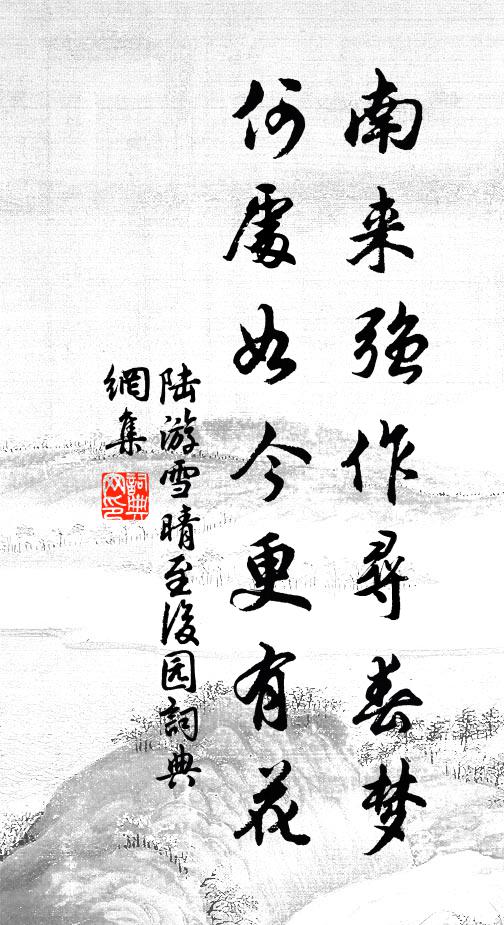 南来強作尋春梦
何處如今更有花
陆游雪晴至後园詞典
網集
詞典
网印